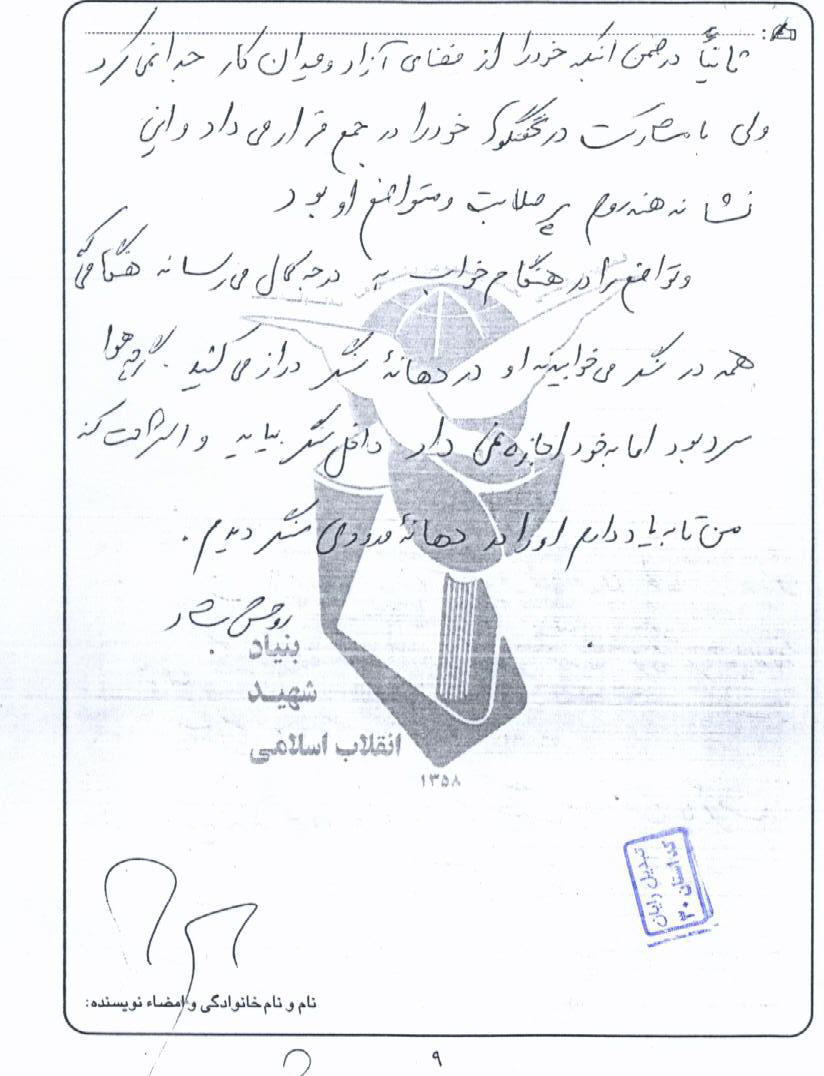 ثانیاً در ضمن اینکه خود را از فضای آزاد و میدان کار جدا نمی کرد
ولی با مشارکت در گفتگو خود را در جمع قرار می داد و این
نشانه هنر روح پر صلابت و متواضع او بود
و تواضع را در هنگام خواب به درجه کمال می رساند هنگامی که
همه در سنگر می خوابیدند او در دهانۀ سنگر دراز می کشید. گرچه هوا
سرد بود اما به خود اجازه نمی داد داخل سنگر بیاید و استراحت کند
من تا به یاد دارم او را در دهانۀ ورودی سنگر دیدم.
روحش شاد
بنیاد
شهید
انقلاب اسلامی
۱۳۵۸
تبدیل رایان
کد استان ۲۰
نام و نام خانوادگی و امضاء نویسنده:
۹